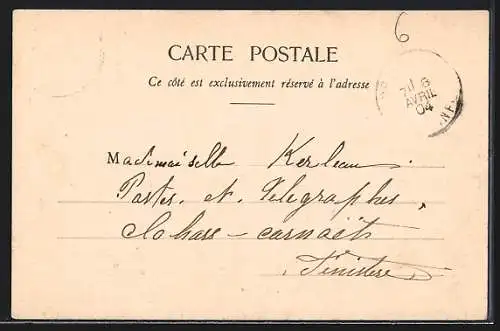 6
CARTE POSTALE
Ce côté est exclusivement réservé à l'adresse
AVRIL
04
Mademoiselle Kerleau
Postes. et. Télégraphes,
Clohars - carnoët
Finistère